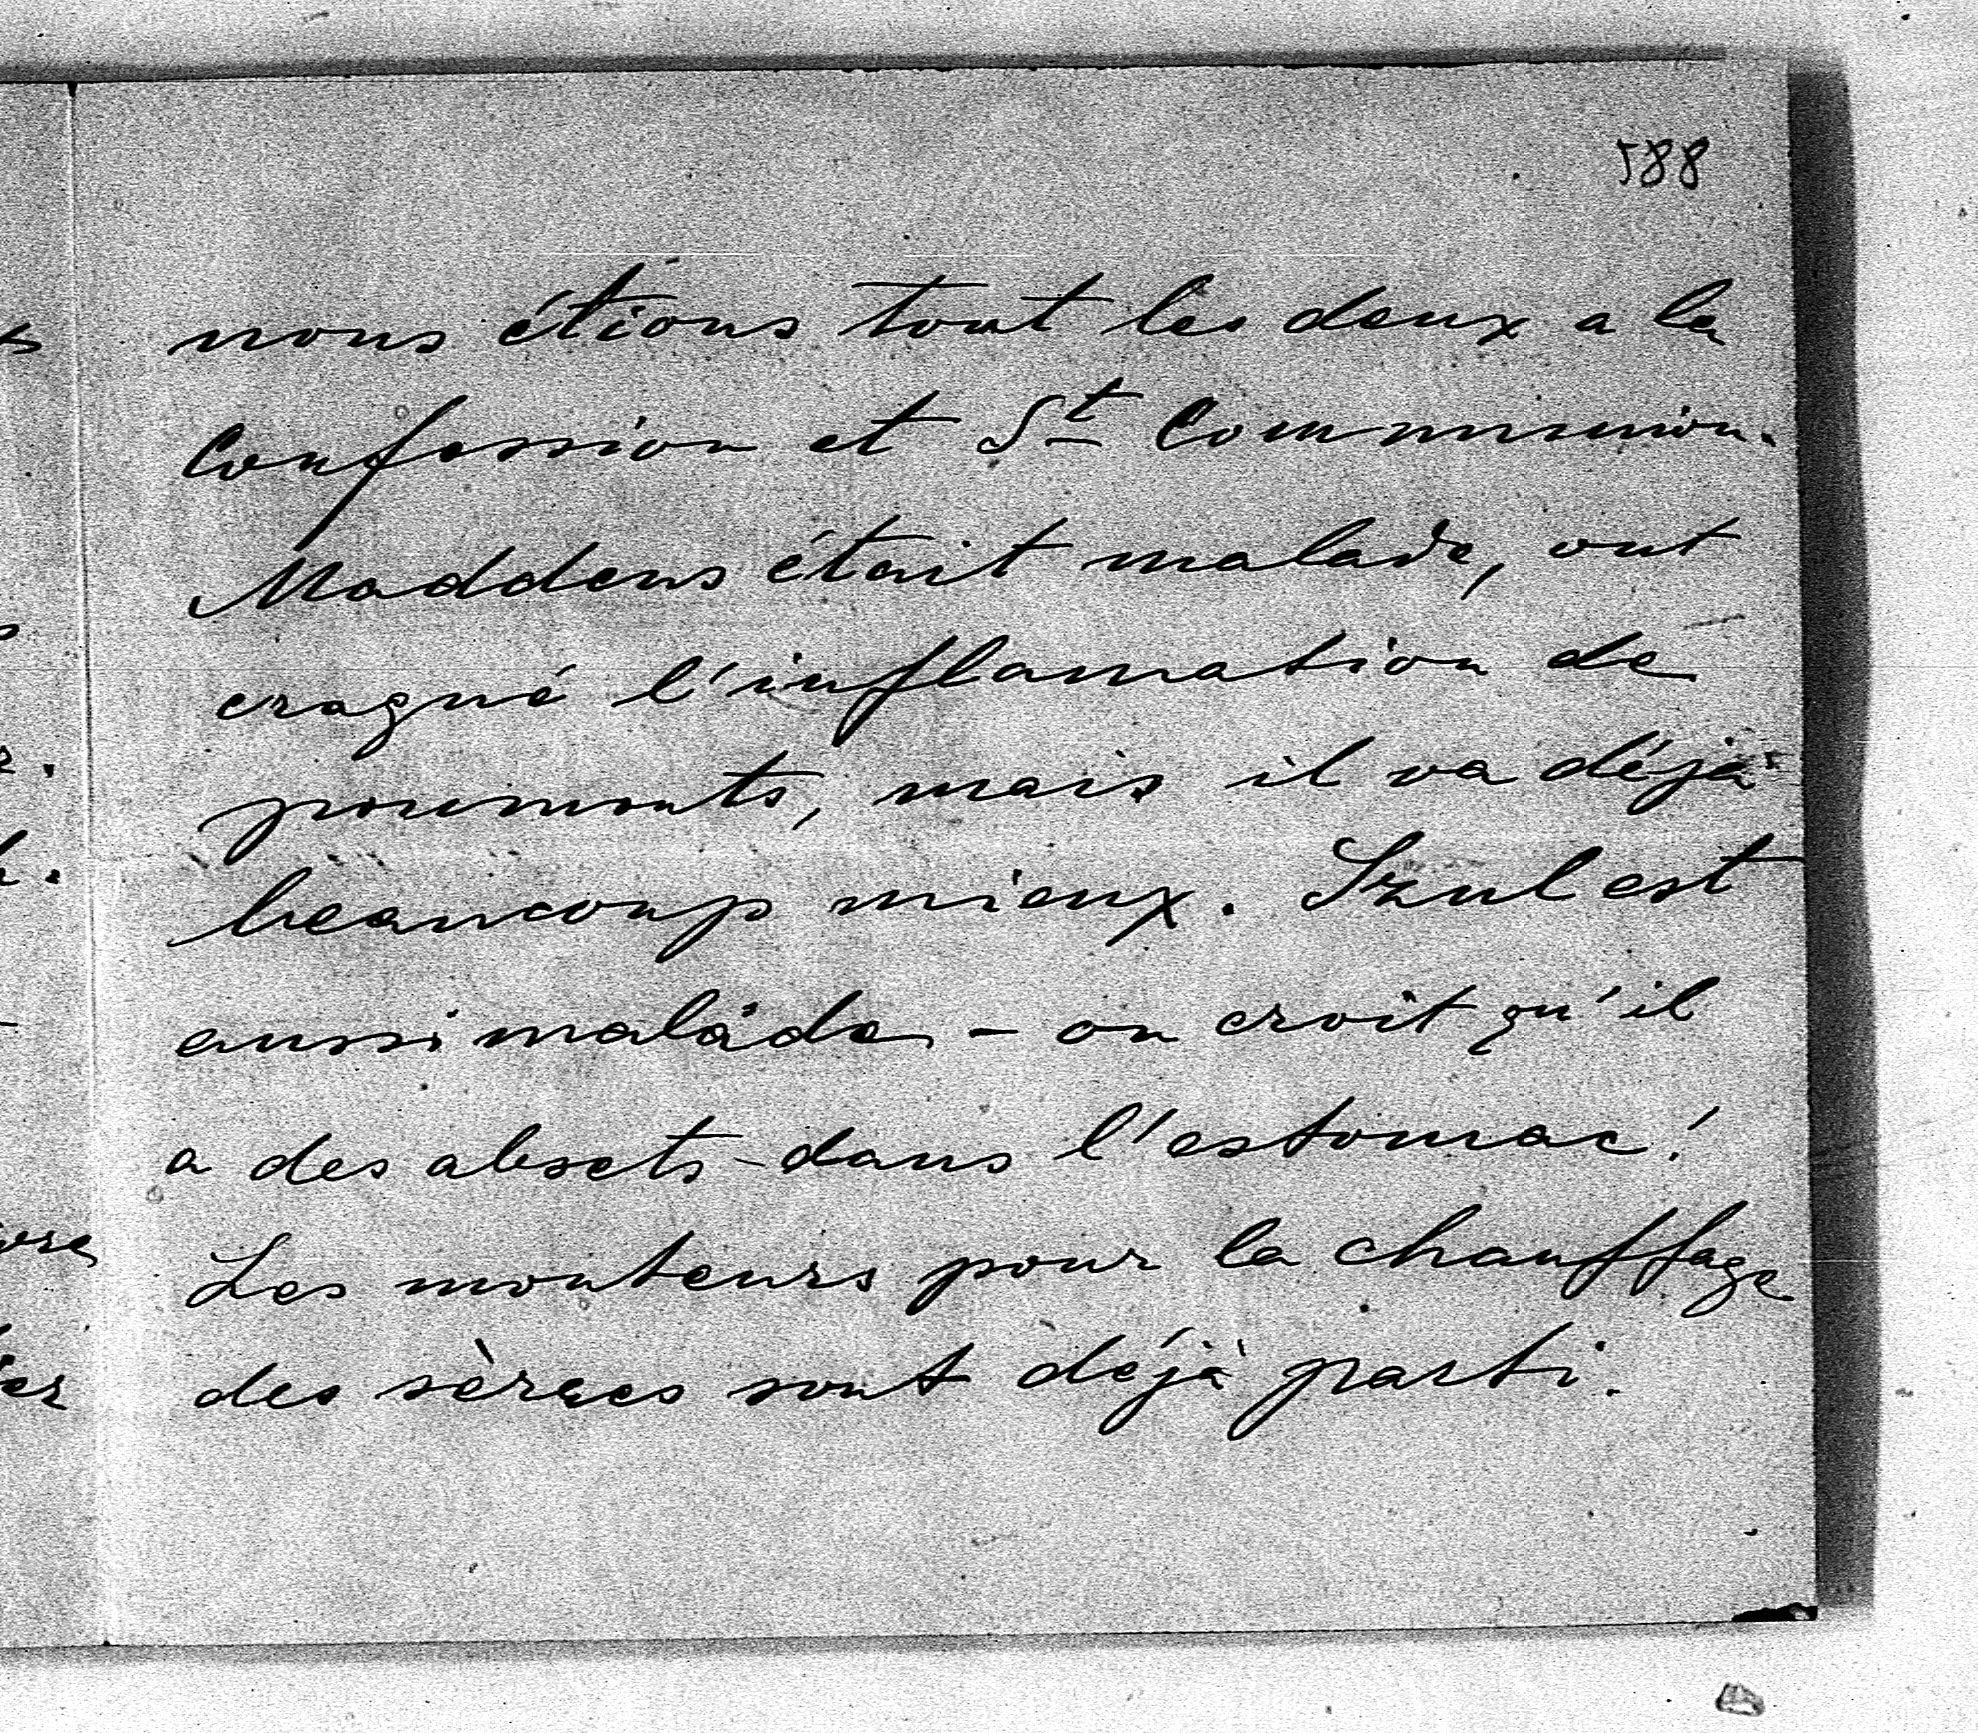 588
nous étions tout les deux a la
Confession et St Communion.
Maddens était malade, out
cragné l'inflamation de
poumonts, mais il va déjà
beaucoup mieux. Szul est
aussi malade - on croit qu'il
a des absets dans l'estomac!
Les monteurs pour la chauffage
des sères sont déjà parti.